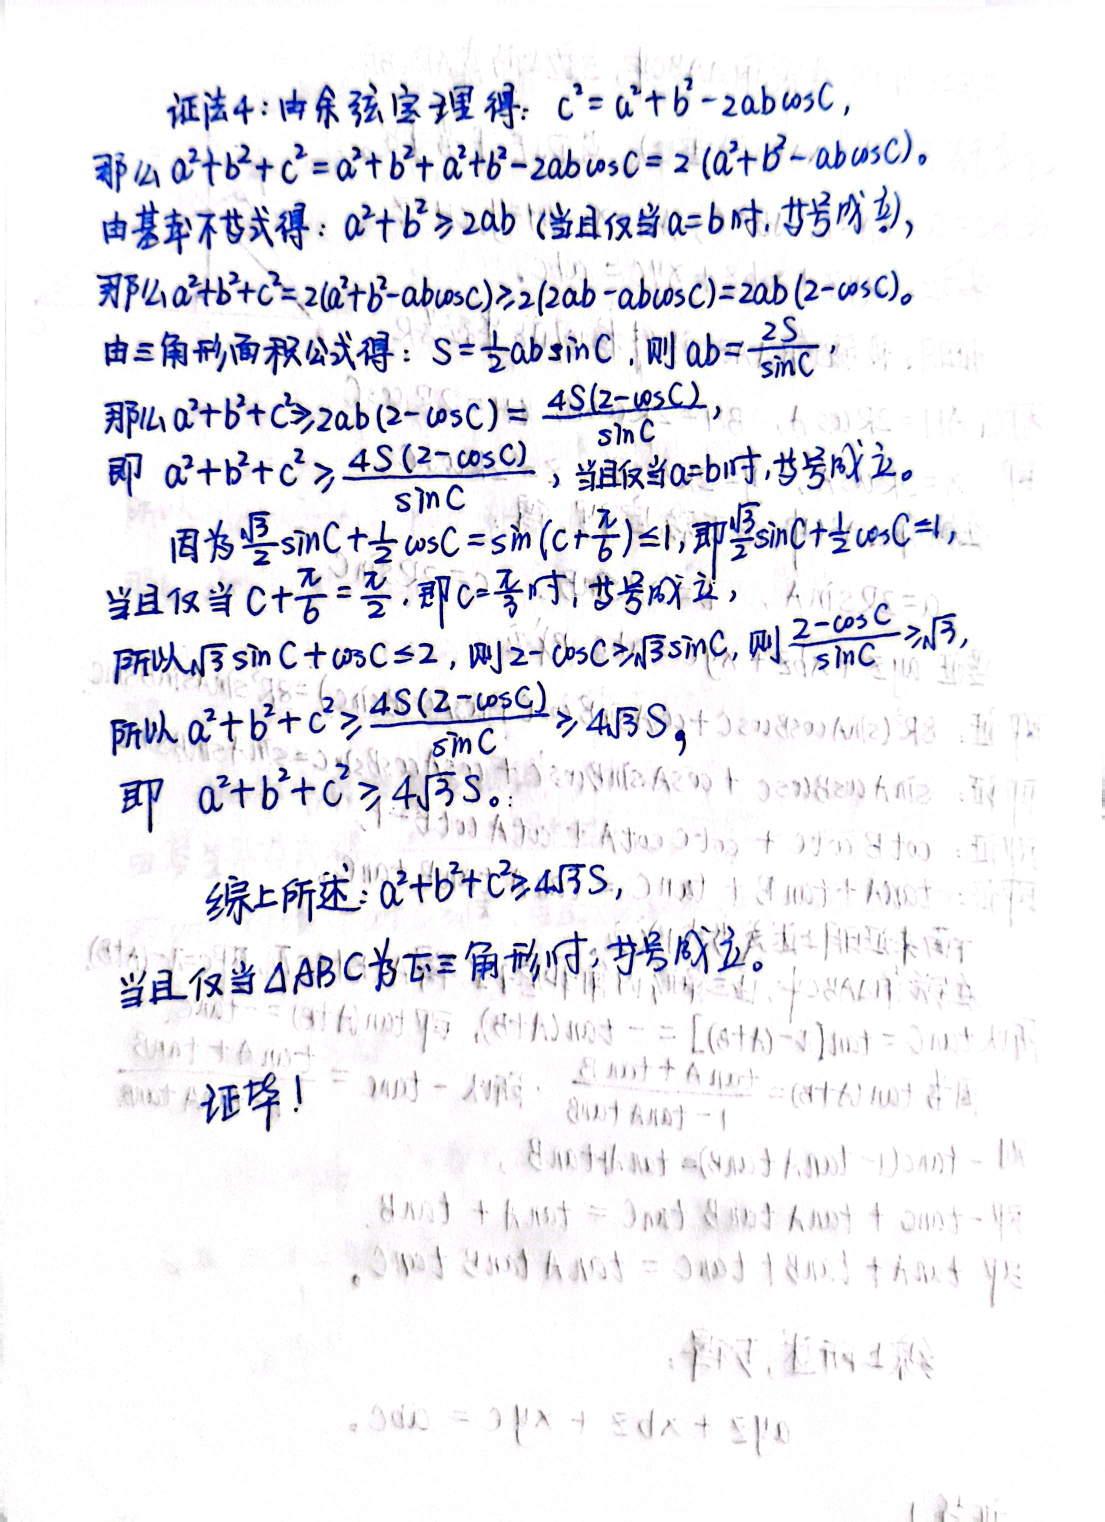 证法4:由余弦定理得:c²=a²+b²-2abcosC,
那么a²+b²+c²=a²+b²+a²+b²-2abcosC=2(a²+b²-abcosC)。
由基本不等式得:a²+b²≥2ab(当且仅当a=b时,等号成立),
那么a²+b²+c²=2(a²+b²-abcosC)≥2(2ab-abcosC)=2ab(2-cosC)。
由三角形面积公式得:S=½absinC,则ab=2S/sinC,
那么a²+b²+c²≥2ab(2-cosC)=4S(2-cosC)/sinC,
即 a²+b²+c²≥4S(2-cosC)/sinC,当且仅当a=b时,等号成立。
因为√3/2sinC+½cosC=sin(C+π/6)≤1,即√3/2sinC+½cosC≤1,
当且仅当C+π/6=π/2,即C=π/3时,等号成立,
所以√3sinC+cosC≤2,则2-cosC≥√3sinC,则(2-cosC)/sinC≥√3,
所以a²+b²+c²≥4S(2-cosC)/sinC≥4√3S,
即 a²+b²+c²≥4√3S。
综上所述:a²+b²+c²≥4√3S,
当且仅当△ABC为正三角形时,等号成立。
证毕!